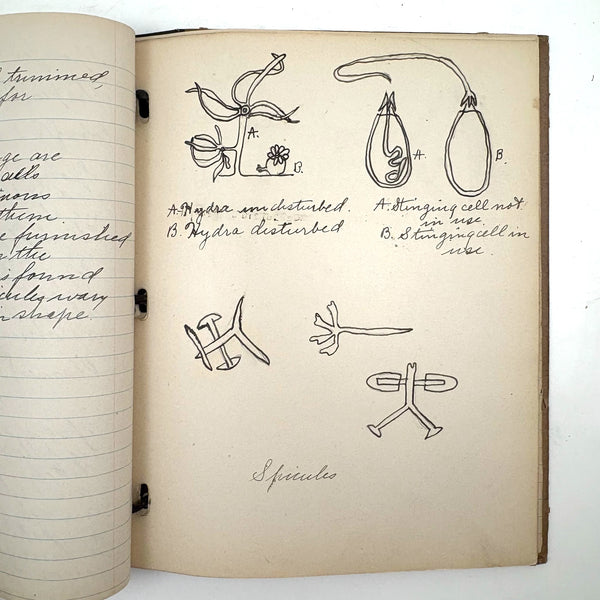 trimmed,
for
are
cells
them.
furnished
the
is found
vary
shape.
A.
B.
A. Hydra undisturbed.
B. Hydra disturbed
A.
B.
A. Stinging cell not
in use.
B. Stinging cell in
use.
Spicules